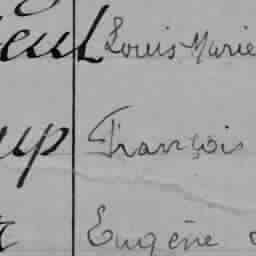 eul Louis Marie
up François
Eugène